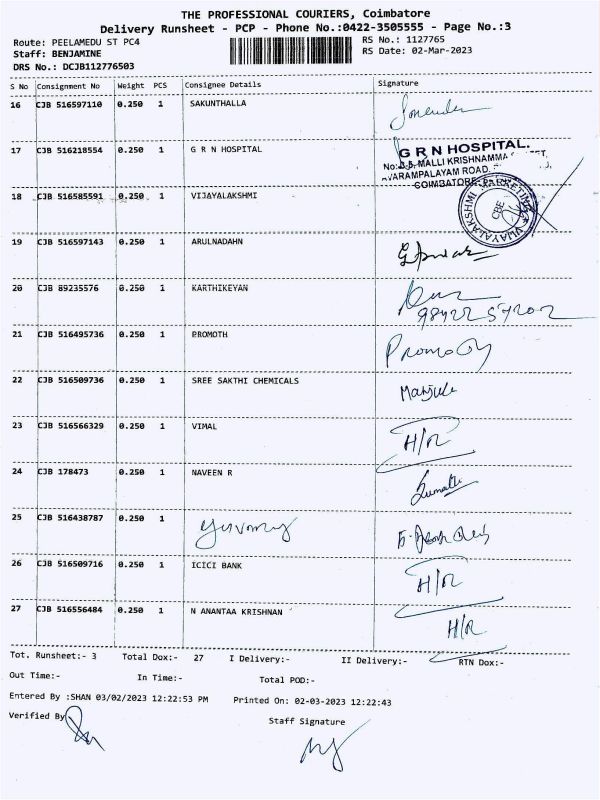 THE PROFESSIONAL COURIERS, Coimbatore
Delivery Runsheet - PCP - Phone No.:0422-3505555 - Page No.:3
Route: PEELAMEDU ST PC4 RS No.: 1127765
Staff: BENJAMINE RS Date: 02-Mar-2023
DRS No.: DCJB112776503
S No Consignment No Weight PCS Consignee Details Signature
16 CJB 516597110 0.250 1 SAKUNTHALLA
17 CJB 516218554 0.250 1 G R N HOSPITAL
G R N HOSPITAL.
MALLI KRISHNAMMA
AVARAMPALAYAM ROAD,
COIMBATORE
18 CJB 516585591 0.250 1 VIJAYALAKSHMI
VIJAYALAKSHMI MARKETING
CBE
19 CJB 516597143 0.250 1 ARULNADAHN
20 CJB 89235576 0.250 1 KARTHIKEYAN
98422 57202
21 CJB 516495736 0.250 1 PROMOTH Promoth
22 CJB 516509736 0.250 1 SREE SAKTHI CHEMICALS Manjula
23 CJB 516566329 0.250 1 VIMAL H/R
24 CJB 178473 0.250 1 NAVEEN R
25 CJB 516438787 0.250 1
26 CJB 516509716 0.250 1 ICICI BANK H/R
27 CJB 516556484 0.250 1 N ANANTAA KRISHNAN H/R
Tot. Runsheet:- 3 Total Dox:- 27 I Delivery:- II Delivery:- RTN Dox:-
Out Time:- In Time:- Total POD:-
Entered By :SHAN 03/02/2023 12:22:53 PM Printed On: 02-03-2023 12:22:43
Verified By Staff Signature